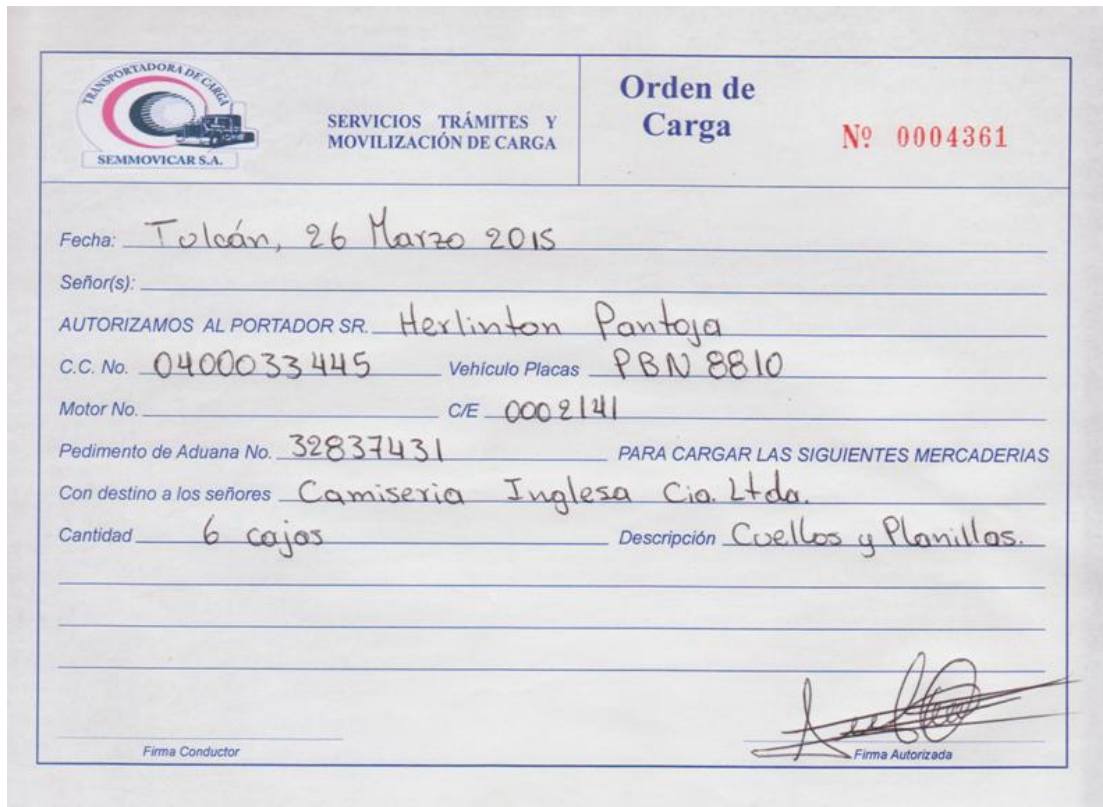 TRANSPORTADORA DE CARGA
SEMMOVICAR S.A.
SERVICIOS TRÁMITES Y
MOVILIZACIÓN DE CARGA
Orden de
Carga
Nº 0004361
Fecha: Tulcán, 26 Marzo 2015
Señor(s):
AUTORIZAMOS AL PORTADOR SR. Herlinton Pantoja
C.C. No. 0400033445 Vehículo Placas PBN 8810
Motor No. C/E 0002141
Pedimento de Aduana No. 32837431 PARA CARGAR LAS SIGUIENTES MERCADERIAS
Con destino a los señores Camiseria Inglesa Cia. Ltda.
Cantidad 6 cajas Descripción Cuellos y Planillas.
Firma Conductor
Firma Autorizada